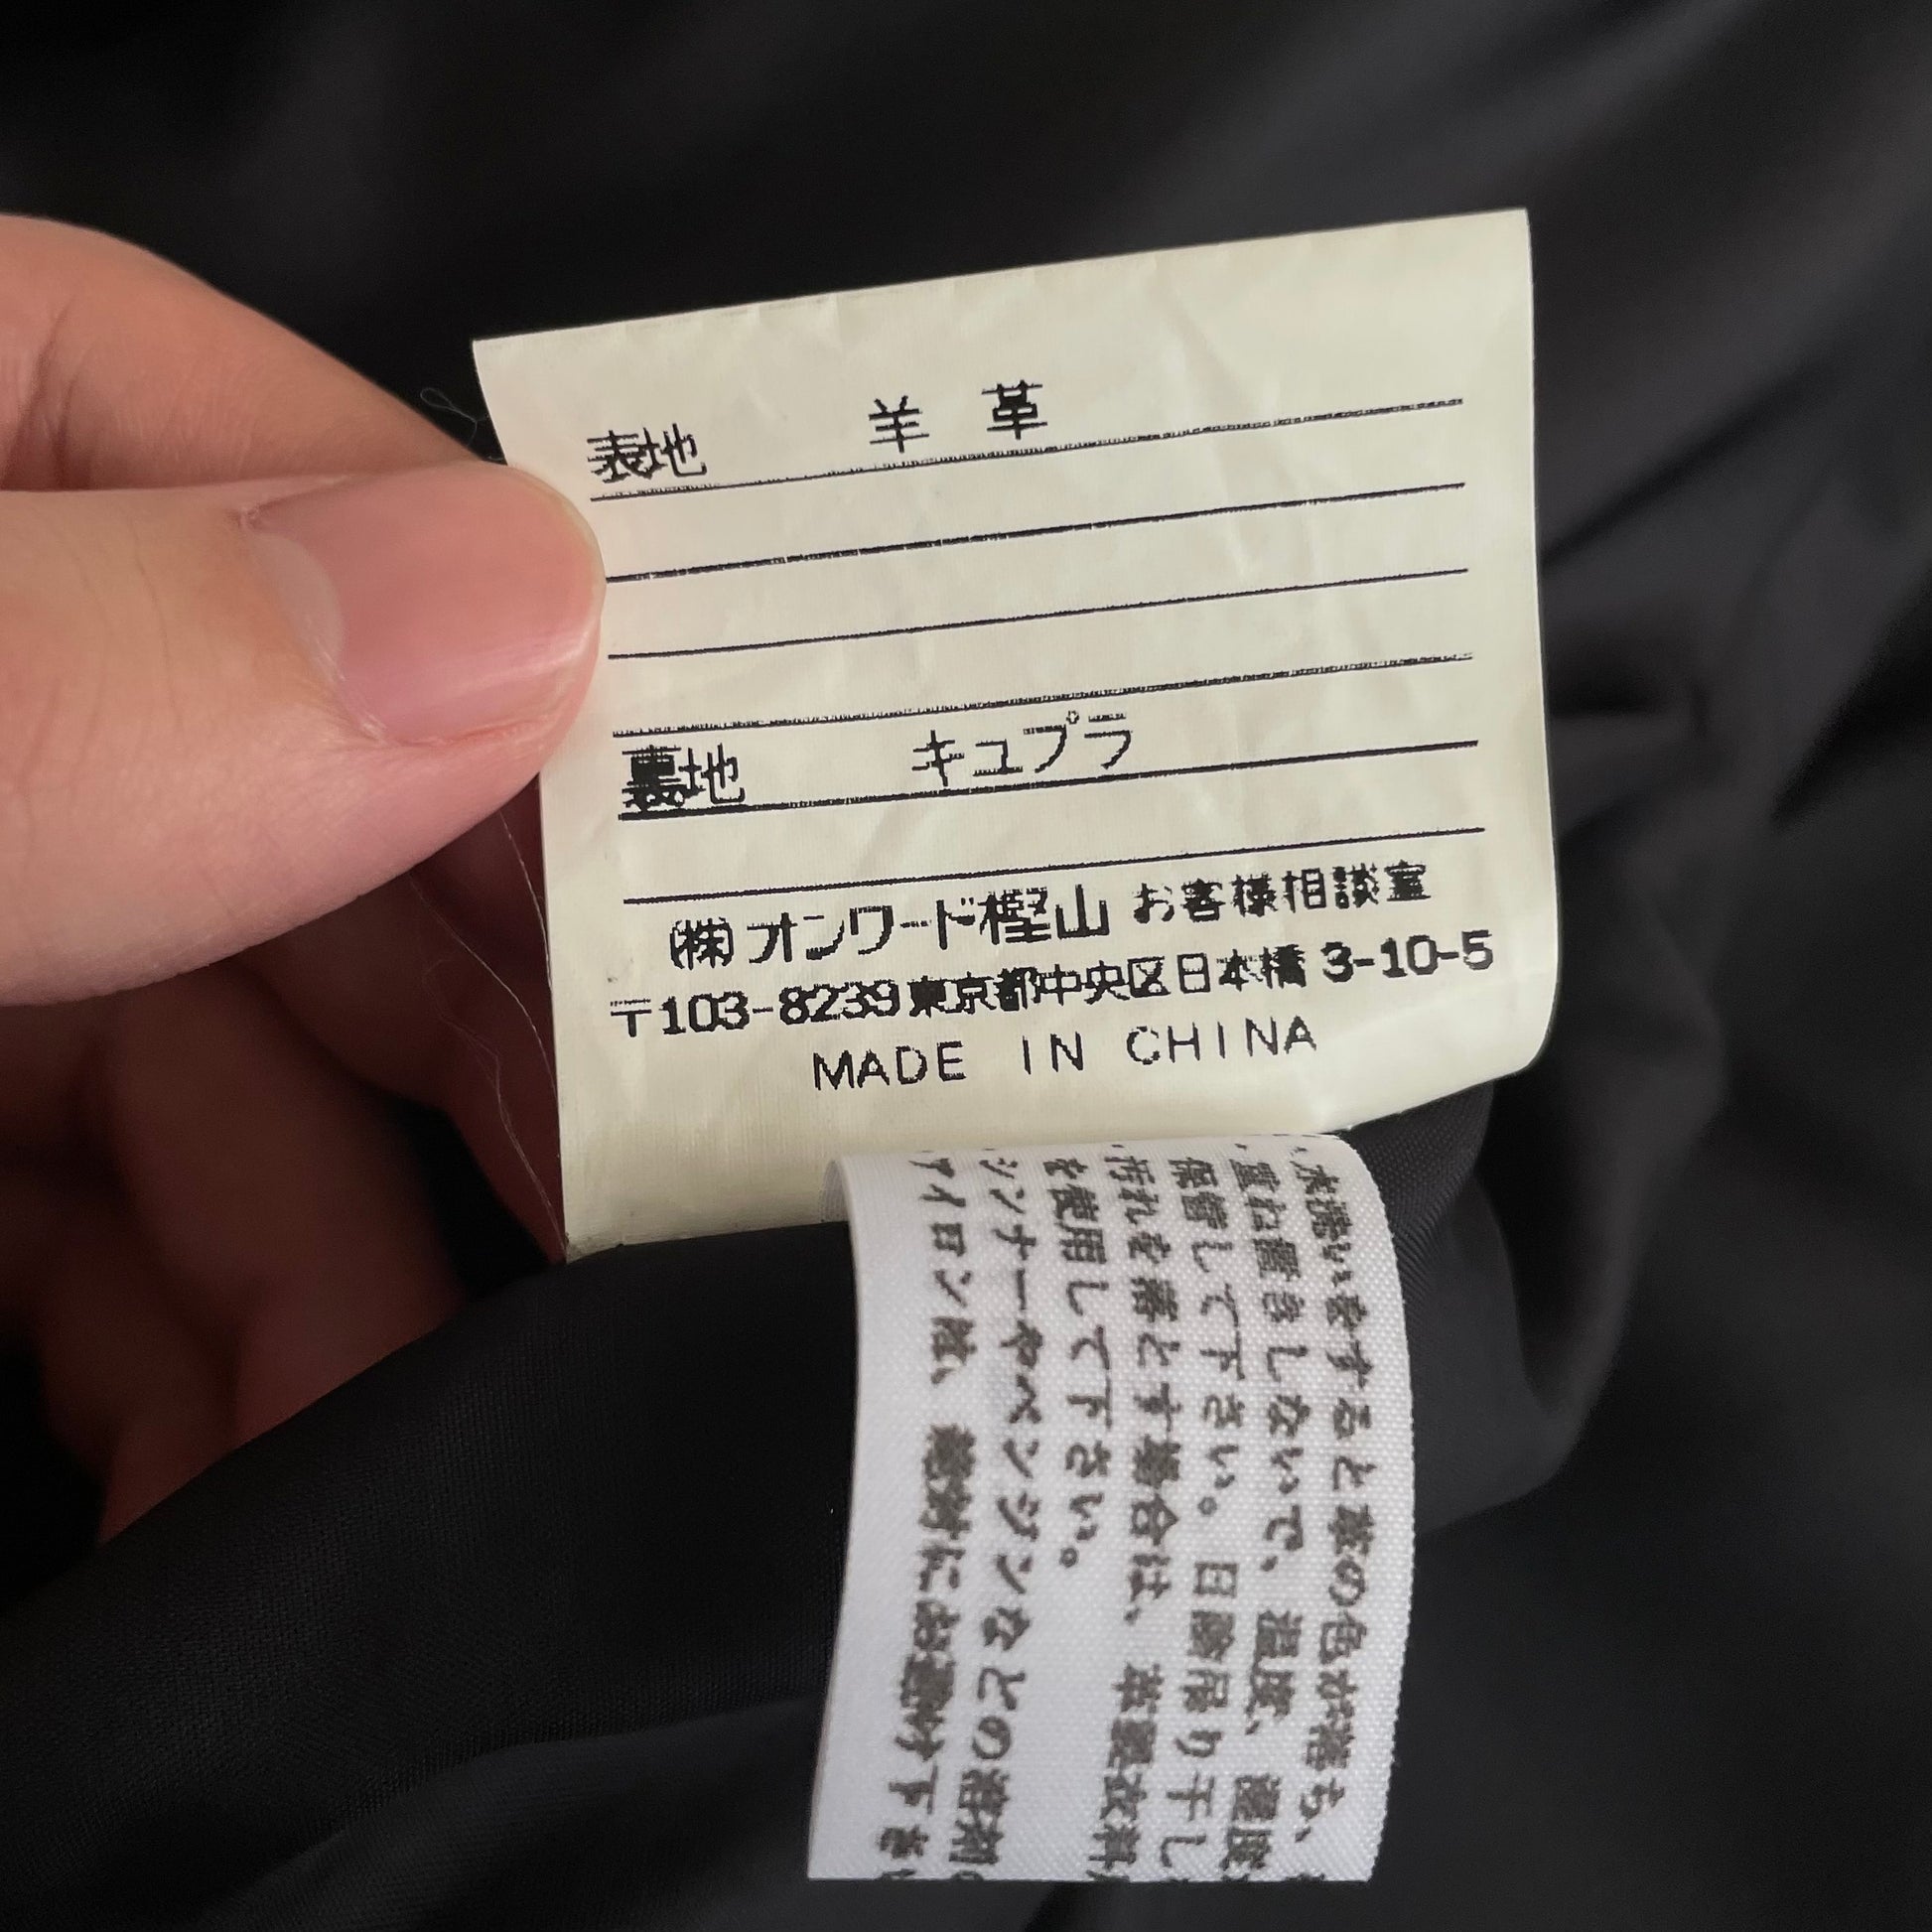 表地 羊革
裏地 キュプラ
(株)オンワード樫山 お客様相談室
〒103-8239東京都中央区日本橋3-10-5
MADE IN CHINA
、水洗いをすると革の色が落ち、
、重ね置きしないで、温度、湿度
保管して下さい。日陰吊り干し
、汚れを落とす場合は、革製衣料
を使用して下さい。
シンナーやベンジンなどの溶剤
アイロンは、絶対にお避け下さ